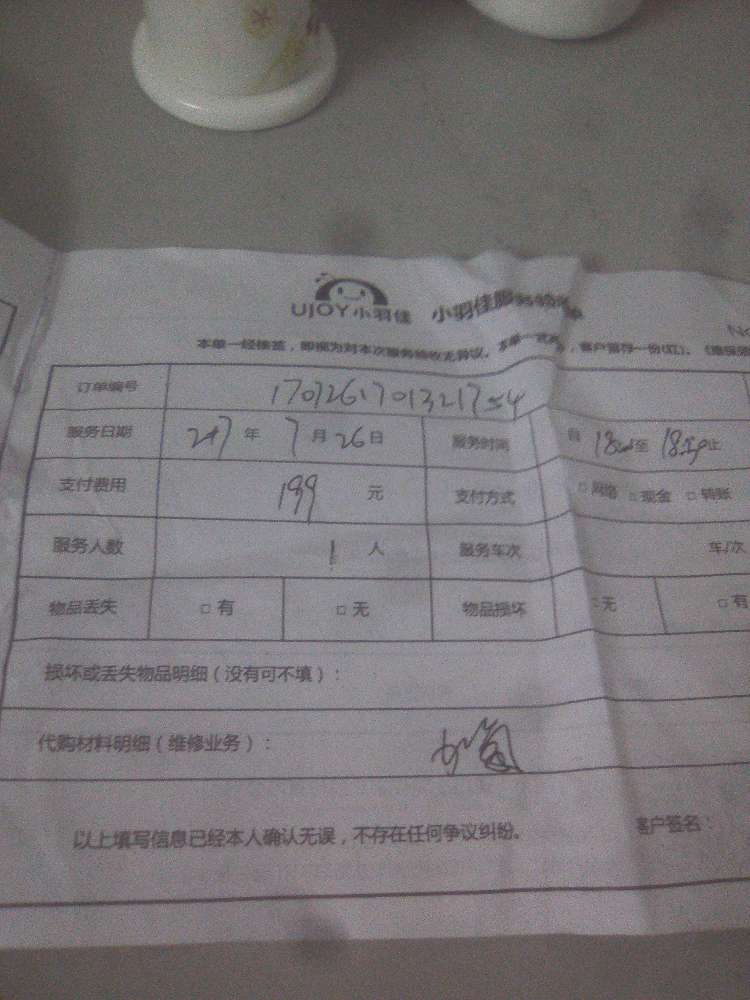 UJOY小羽佳 小羽佳服务验收单
本单一经接签，即视为对本次服务验收无异议。 客户留存一份(红)。
订单编号
服务日期 2017 年 7 月 26 日 服务时间 自 至 止
支付费用 199 元 支付方式 □网络 □现金 □转账
服务人数 1 人 服务车次 车/次
物品丢失 □有 □无 物品损坏 □无 □有
损坏或丢失物品明细（没有可不填）：
代购材料明细（维修业务）：
以上填写信息已经本人确认无误，不存在任何争议纠纷。 客户签名：